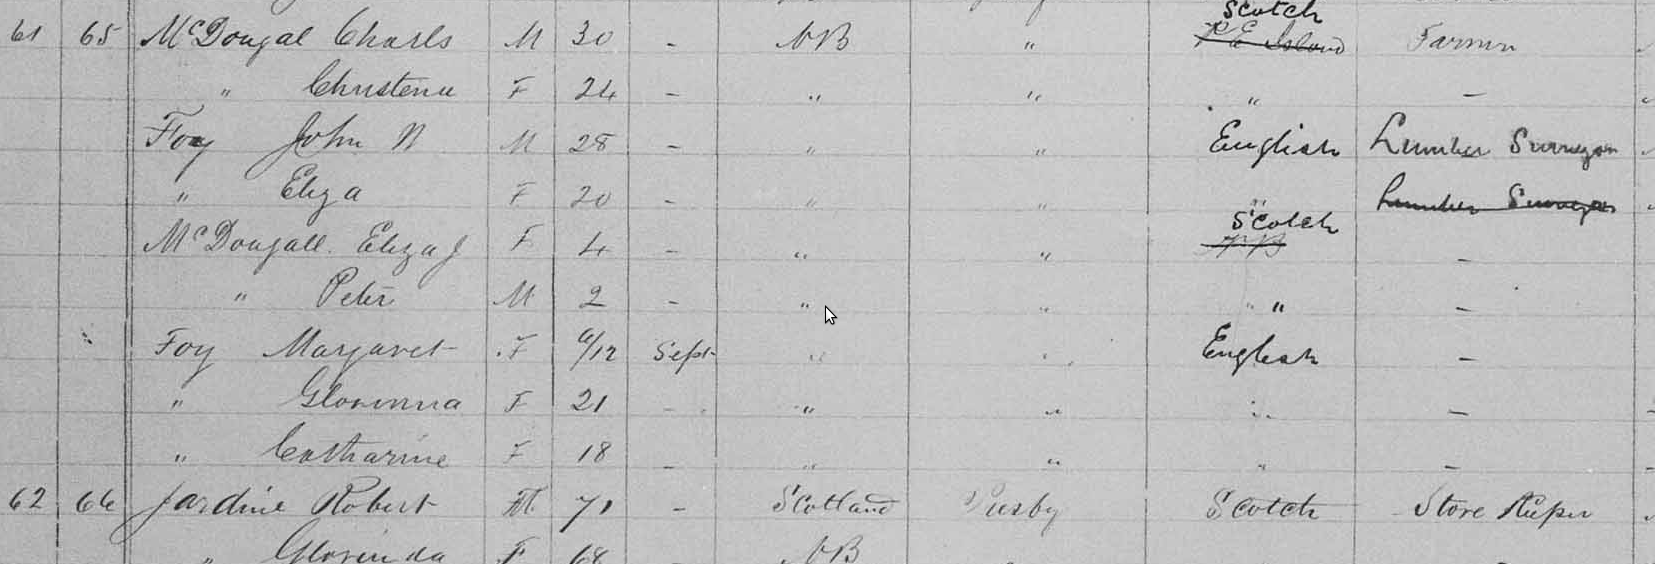 61 65 McDougal Charls M 30 - NB " Scotch P E Island Farmer
" Christena F 24 - " " " -
Foy John N M 28 - " " English Lumber Surveyor
" Eliza F 20 - " " " Lumber Surveyor
McDougall Eliza J F 4 - " " Scotch NB -
" Peter M 2 - " " " " -
Foy Margaret F 6/12 Sept " " English -
" Glorinna F 21 - " " " -
" Catharine F 18 - " " " -
62 66 Jardine Robert M 71 - Scotland Scotch Store Keeper
" Glorinda F 68 NB